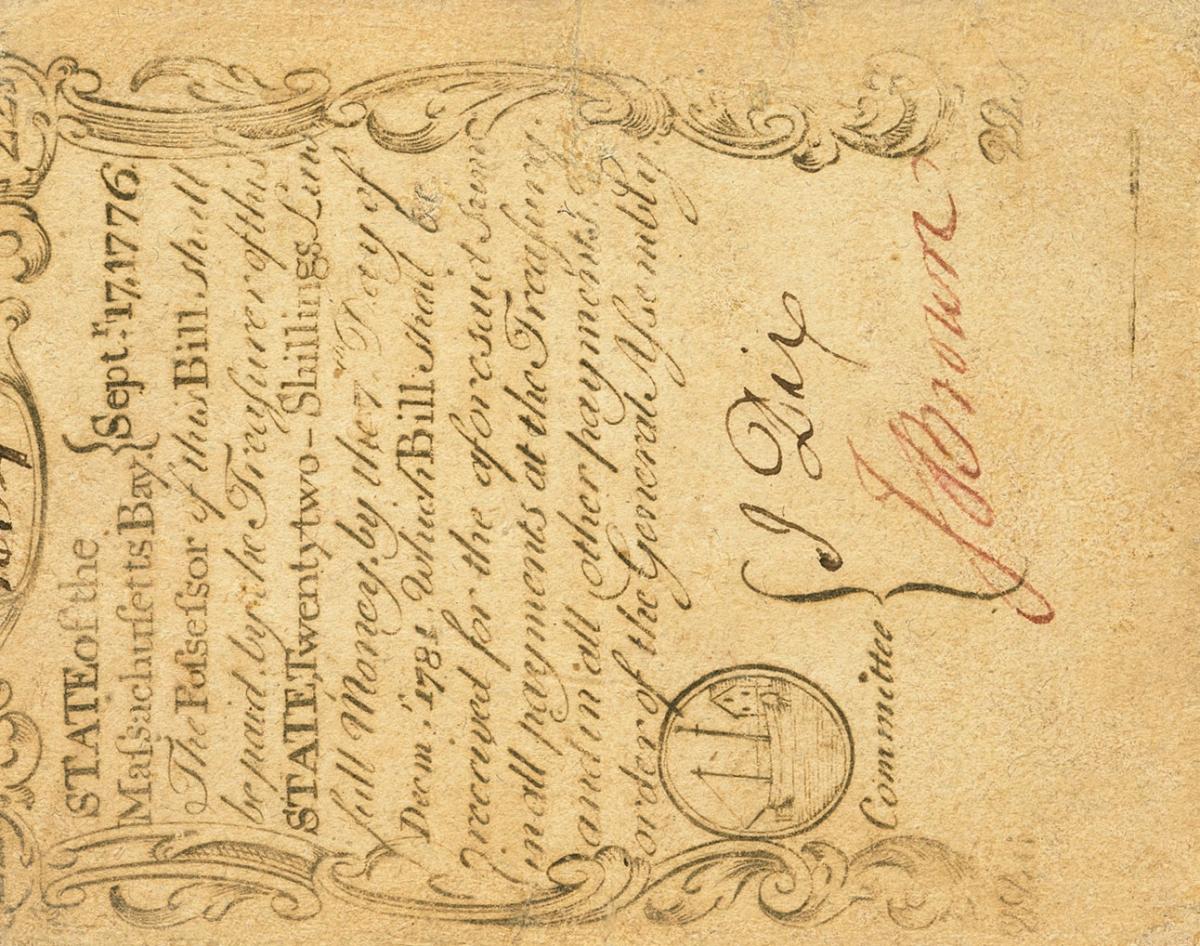 STATE of the
Maſsachuſetts Bay. } { Septr. 17, 1776.
The Poſseſsor of this Bill shall
be paid by the Treaſurer of this
STATE, Twenty two - Shillings Law
full Money, by the 7th Day of
Decm. 1784 Which Bill shall be
received for the aforesaid sum
in all payments at the Treaſury,
and in all other payments by
order of the General Aſsembly
Committee { J Dix
J Brown
22s